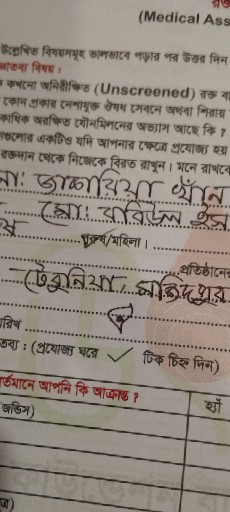 (Medical Ass
উল্লেখিত বিষয়সমূহ ভালভাবে পড়ার পর উত্তর দিন
জ্ঞাতব্য বিষয় :
কখনো অনিরীক্ষিত (Unscreened) রক্ত
কোন প্রকার নেশাযুক্ত ঔষধ সেবনে অথবা শিরায়
কাধিক অরক্ষিত যৌনমিলনের অভ্যাস আছে কি ?
গুলোর একটিও যদি আপনার ক্ষেত্রে প্রযোজ্য হয়
রক্তদান থেকে নিজেকে বিরত রাখুন। মনে রাখবে
জাকারিয়া খাঁন
মো: রবিউল ইস
পুরুষ/মহিলা।
প্রতিষ্ঠানের
তেবুনিয়া, মজিদপুর
রিখ
তব্য : (প্রযোজ্য ঘরে ✓ টিক চিহ্ন দিন)
র্তমানে আপনি কি আক্রান্ত ? হ্যাঁ
(জন্ডিস)